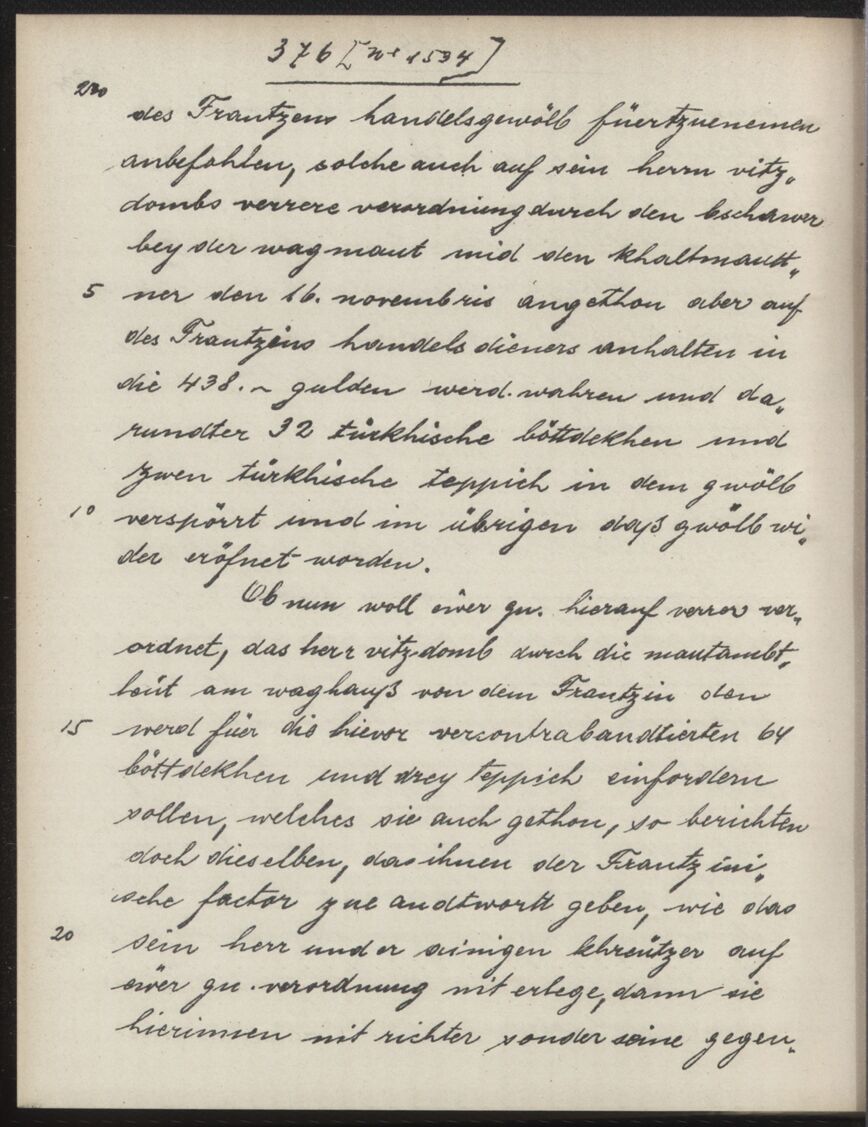 376 [Nr 1534]
230
des Frantzens handelsgewölb füertzuenemen
anbefohlen, solche auch auf sein herrn vitz„
dombs verrere verordnung durch den bschawer
bey der wagmaut und den khaltmautt„
5 ner den 16. novembris angethon aber auf
des Frantzins handelsdieners anhalten in
die 438.~ gulden werd. wahren und da„
rundter 32 türkhische böttdekhen und
zwen türkhische teppich in dem gwölb
10 verspörrt und im übrigen daß gwölb wi„
der eröfnet worden.
Ob nun woll ewer gn. hierauf verrer ver„
ordnet, das herr vitzdomb durch die mautambt„
leüt am waghauß von dem Frantzin den
15 werd für die hievor vercontrabandtierten 64
böttdekhen und drey teppich einfordern
sollen, welches sie auch gethon, so berichten
doch dieselben, das ihnen der Frantzini„
sche factor zue andtwortt geben, wie das
20 sein herr under ainigen khreützer auf
ewer gn. verordnung nit erlege, dann sie
hierinnen nit richter sonder seine gegen„